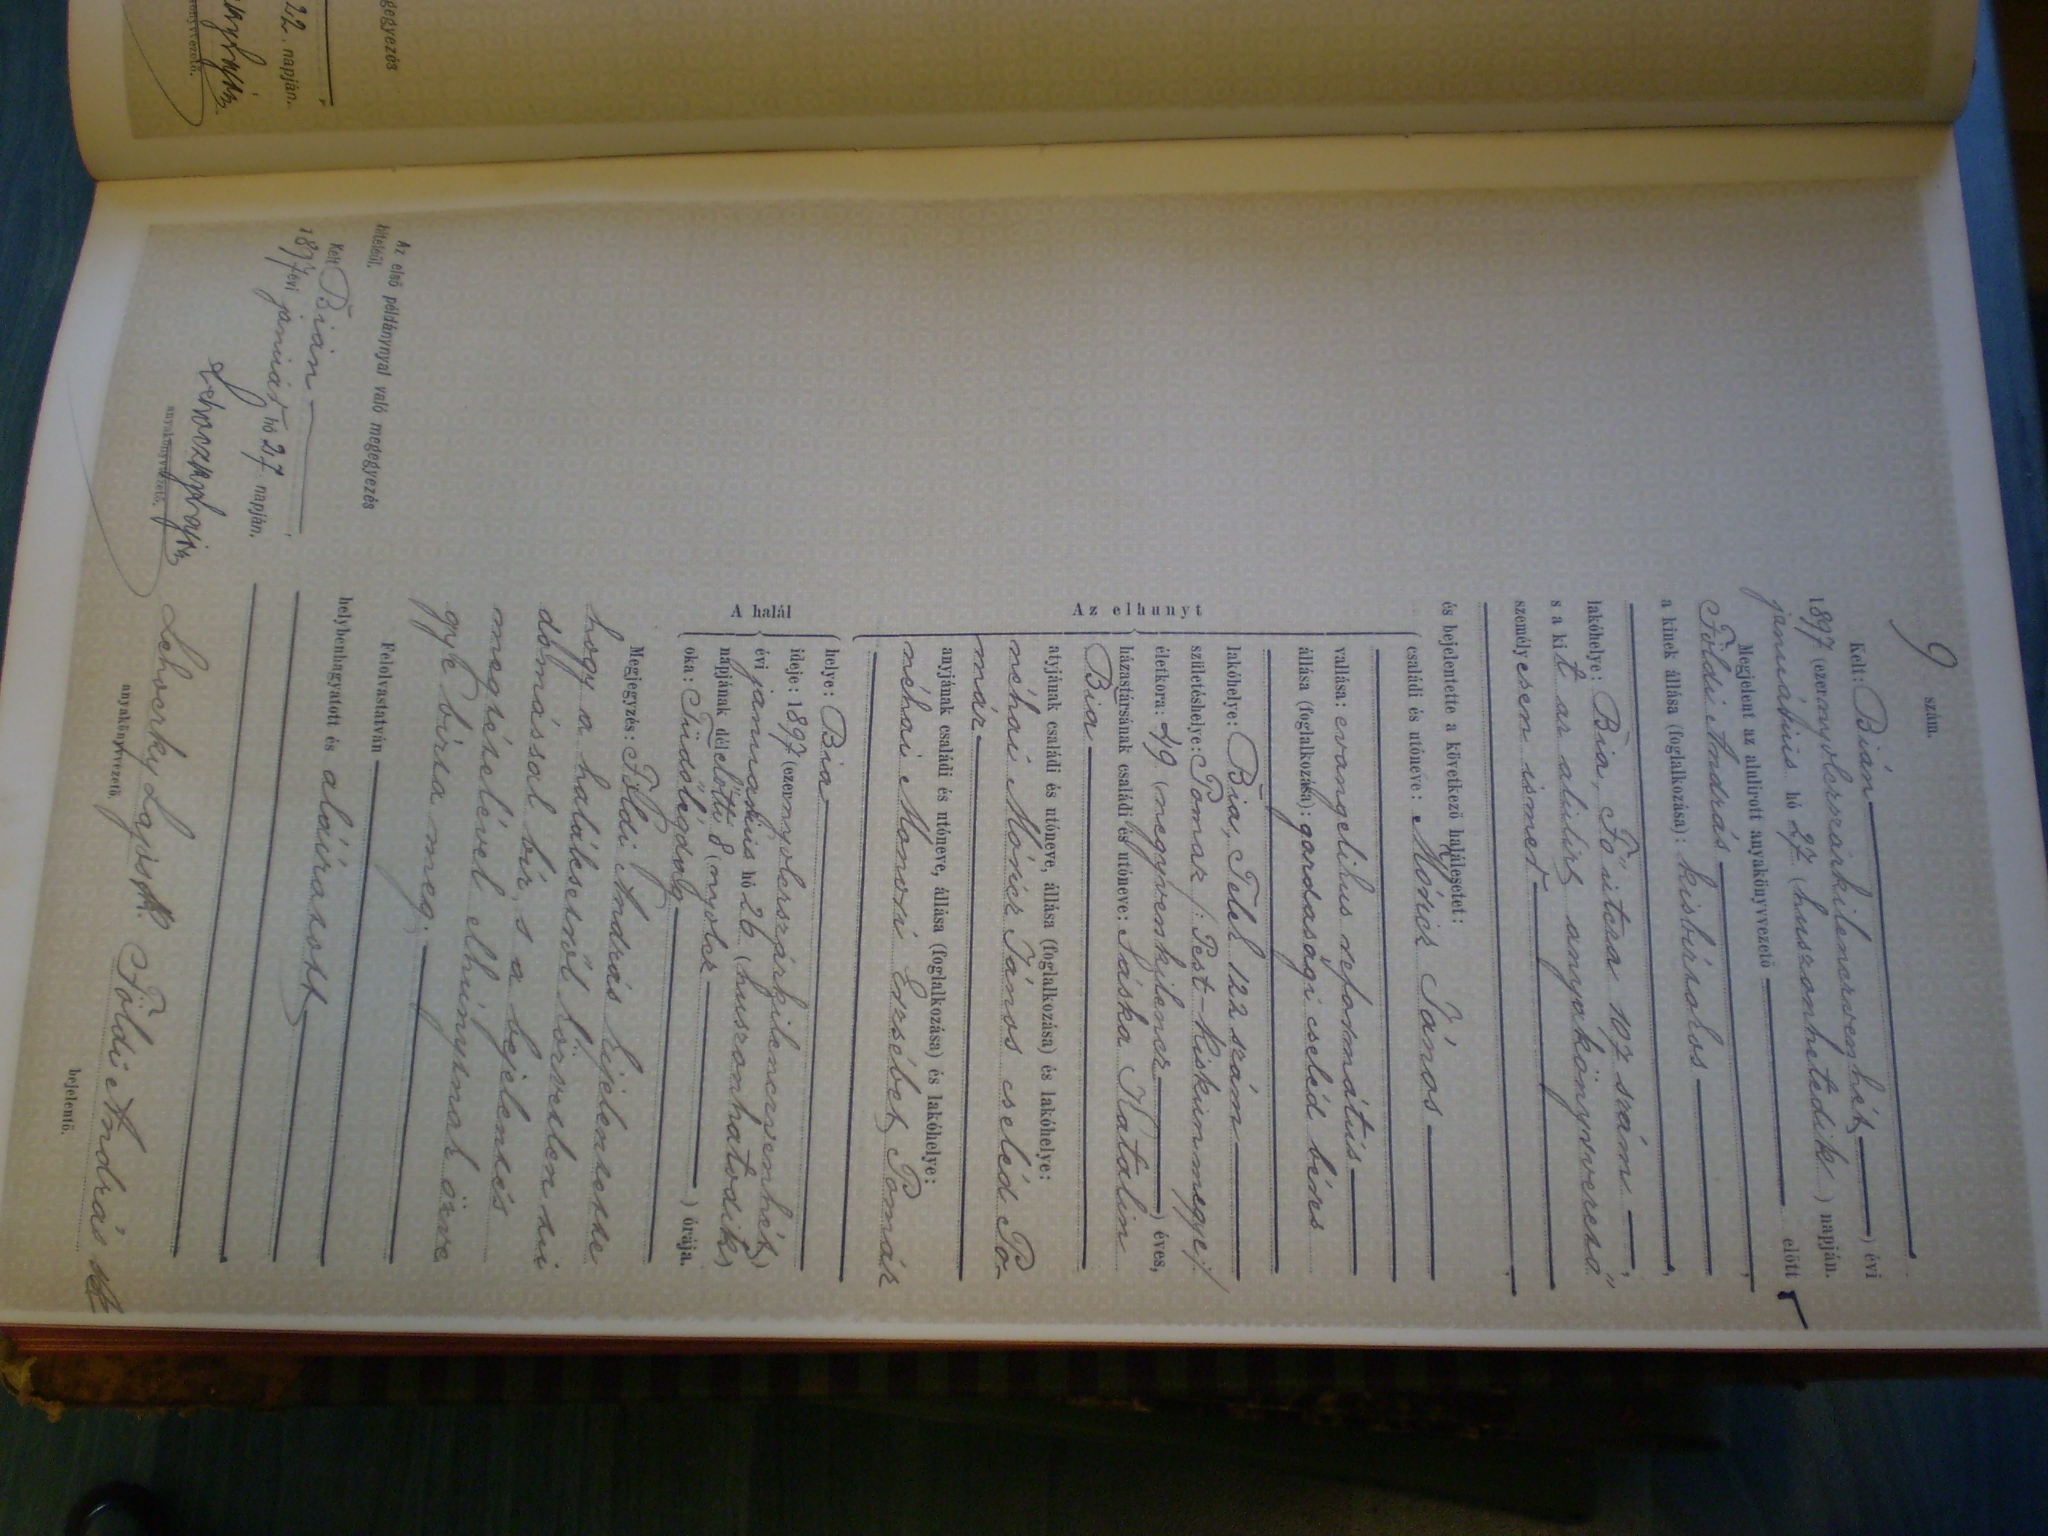 gegyezés
22. napján.
9 szám.
Kelt: Bián ) évi
1897 (ezernyolcszázkilencvenhét
januárius hó 27 (huszonhetedik ) napján.
Megjelent az alulirott anyakönyvvezető előtt
Földi András
a kinek állása (foglalkozása): kisbíratos
lakóhelye: Bia, Fő utcza 107 szám
s a kit az alulírt anyakönyvvezető
személyesen ismer
és bejelentette a következő halálesetet:
családi és utóneve: Móricz János
vallása: evangelikus református
állása (foglalkozása): gazdasági cseléd béres
lakóhelye: Bia, Telek 122 szám
születéshelye: Pomaz /: Pest-Kiskunmegye :/
életkora: 49 (negyvenkilencz ) éves,
házastársának családi és utóneve: Sáska Katalin
Bia
atyjának családi és utóneve, állása (foglalkozása) és lakóhelye:
néhai Móricz János cseléd Po-
máz
anyjának családi és utóneve, állása (foglalkozása) és lakóhelye:
néhai Monori Erzsébet, Pomáz
Az elhunyt
helye: Bia
ideje: 1897 (ezernyolcszázkilencvenhét)
évi januárius hó 26 (huszonhatodik)
napjának délelőtti 8 (nyolcz ) órája.
oka: Tüdőlégdag
A halál
Megjegyzés: Földi András kijelentette
hogy a halálesetről közvetlen tu
domással bír, s a bejelentés
megtételével elhunytnak özve
gye bízta meg.
Felolvastatván
helybenhagyatott és aláíratott
Lehoczky Lajos sk. Földi András sk
anyakönyvvezető bejelentő.
Az első példánynyal való megegyezés
hiteléül.
Kelt Bián
1897 évi január hó 27 napján.
Lehoczky Lajos
anyakönyvvezető.